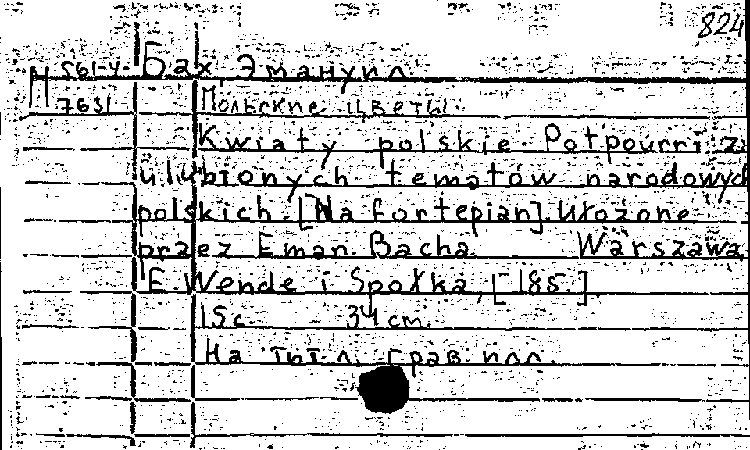 824
М 561-4. Бах Эмануил.
7631 Польские цветы.
Kwiaty polskie. Potpourri z
ulubionych tematów narodowych
polskich. [Na fortepian]. Ułożone
przez Eman. Bacha. Warszawa,
E. Wende i Spółka, [185.]
15 с. 34 cm.
На тит. л. грав. илл.